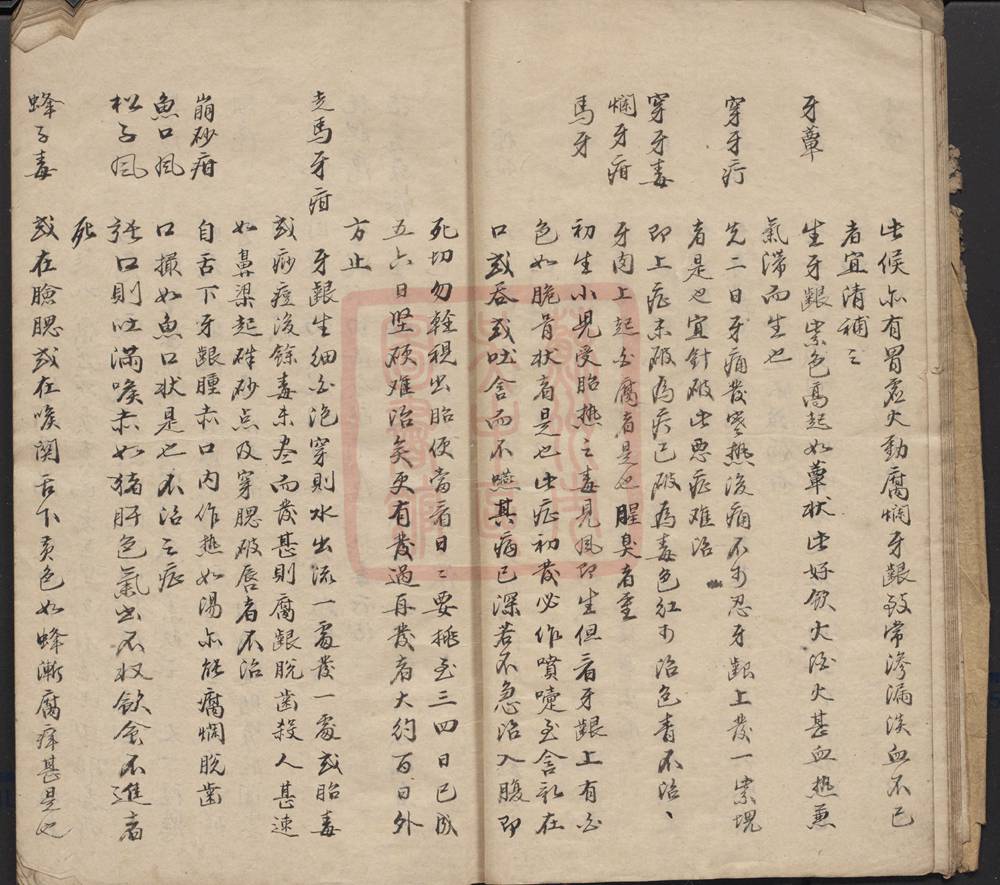 此候亦有胃虛火動腐爛牙齦致常滲漏淡血不已
者宜清補之
牙蕈
生牙齦紫色高起如蕈狀此好飲火酒火甚血熱兼
氣滯而生也
穿牙疔
先二日牙痛發寒熱後痛不可忍牙齦上發一紫塊
者是也宜針破此惡症難治
穿牙毒
即上症未破為疔已破為毒色紅可治色青不治、
爛牙疳
牙肉上起白腐者是也腥臭者重
馬牙
初生小兒受胎熱之毒見風即生但看牙齦上有白
色如脆骨狀者是也此症初發必作噴嚏至含乳在
口或吞或吐含而不嚥其病已深若不急治入腹即
死切勿輕視出胎便當看日二要挑至三四日已成
五六日堅硬難治矣更有發過再發者大約百日外
方止
走馬牙疳
牙齦生細白泡穿則水出流一處發一處或胎毒
或痧痘後餘毒未盡而發甚則腐齦脫齒殺人甚速
如鼻梁起硃砂点及穿腮破唇者不治
崩砂疳
自舌下牙齦腫赤口內作熱如湯亦能腐爛脫齒
魚口風
口撮如魚口狀是也不治之症
松子風
張口則吐滿喉赤如猪肝色氣出不收飲食不進者
死
蜂子毒
或在臉腮或在喉関舌下黃色如蜂漸腐痒甚是也